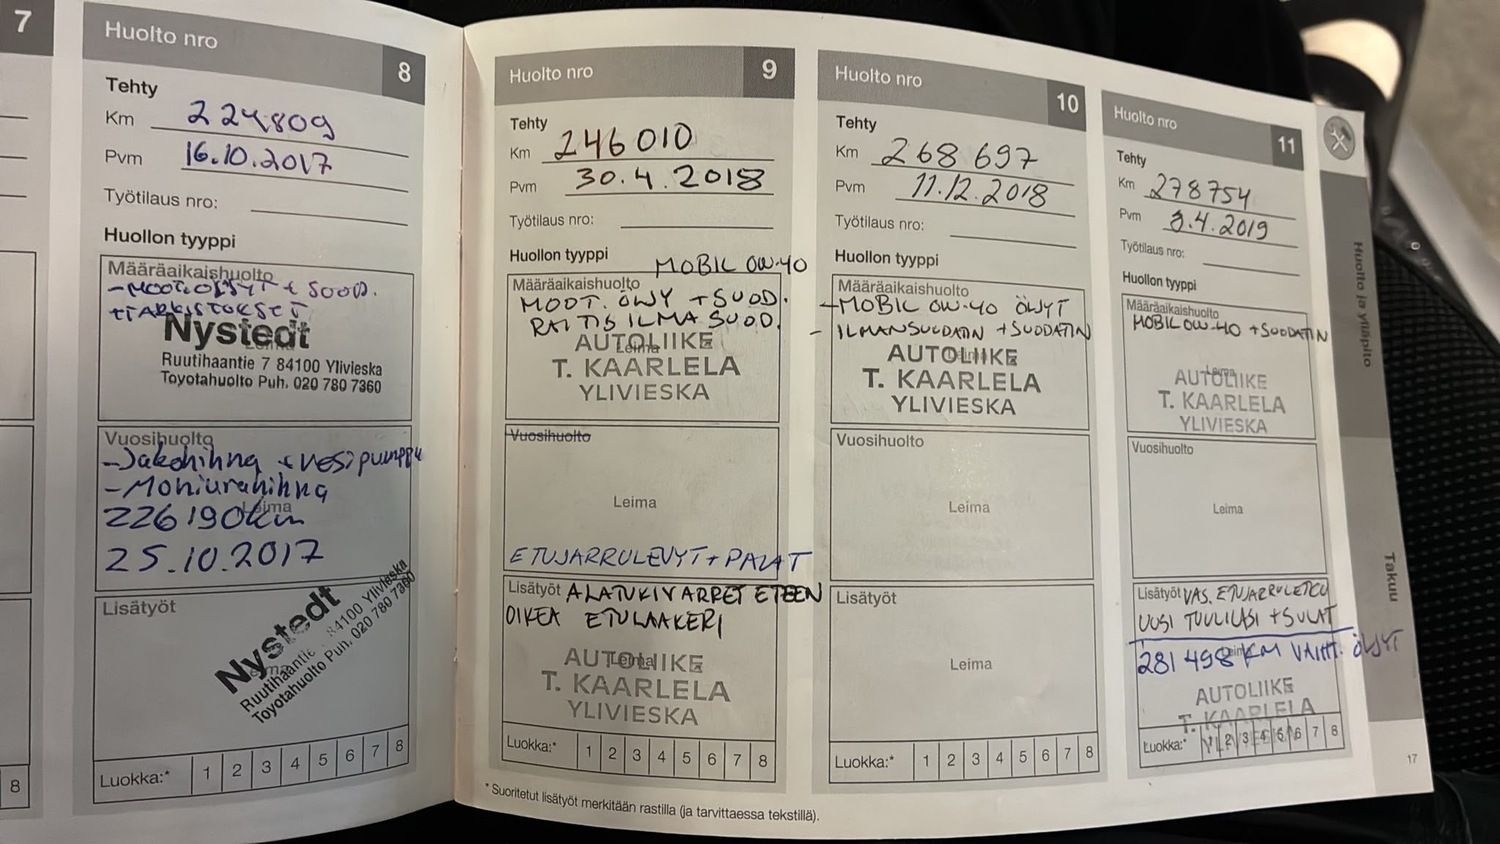 7
8
Huolto nro
8
Tehty
Km 224809
Pvm 16.10.2017
Työtilaus nro:
Huollon tyyppi
Määräaikaishuolto
-MOOT.ÖLJYT + SUOD.
+TARKISTUKSET
Nystedt
Ruutihaantie 7 84100 Ylivieska
Toyotahuolto Puh. 020 780 7360
Vuosihuolto
-Jakohihna + vesipumppu
-Moniurahihna
Leima
226190km
25.10.2017
Lisätyöt
Nystedt
Ruutihaantie 84100 Ylivieska
Toyotahuolto Puh. 020 780 7360
Luokka:* 1 2 3 4 5 6 7 8
Huolto nro
9
Tehty
Km 246010
Pvm 30.4.2018
Työtilaus nro:
Huollon tyyppi
MOBIL 0W-40
Määräaikaishuolto
MOOT. ÖLJY + SUOD.
RAITIS ILMA SUOD.
Leima
AUTOLIIKE
T. KAARLELA
YLIVIESKA
Vuosihuolto
Leima
ETUJARRULEVYT + PALAT
Lisätyöt ALATUKIVARRET ETEEN
OIKEA ETULAAKERI
Leima
AUTOLIIKE
T. KAARLELA
YLIVIESKA
Luokka:* 1 2 3 4 5 6 7 8
* Suoritetut lisätyöt merkitään rastilla (ja tarvittaessa tekstillä).
Huolto nro
10
Tehty
Km 268 697
Pvm 11.12.2018
Työtilaus nro:
Huollon tyyppi
Määräaikaishuolto
-MOBIL 0W-40 ÖLJYT
- ILMANSUODATIN + SUODATIN
AUTOLIIKE
T. KAARLELA
YLIVIESKA
Vuosihuolto
Leima
Lisätyöt
Leima
Luokka:* 1 2 3 4 5 6 7 8
Huolto nro
11
Tehty
Km 278754
Pvm 3.4.2019
Työtilaus nro:
Huollon tyyppi
Määräaikaishuolto
MOBIL 0W-40 + SUODATIN
Leima
AUTOLIIKE
T. KAARLELA
YLIVIESKA
Vuosihuolto
Leima
Lisätyöt VAS. ETUJARRULETKU
UUSI TUULILASI + SULAT
281 498 KM VAIHT. ÖLJYT
Leima
AUTOLIIKE
T. KAARLELA
YLIVIESKA
Luokka:* 1 2 3 4 5 6 7 8
Huolto ja ylläpito
Takuu
17